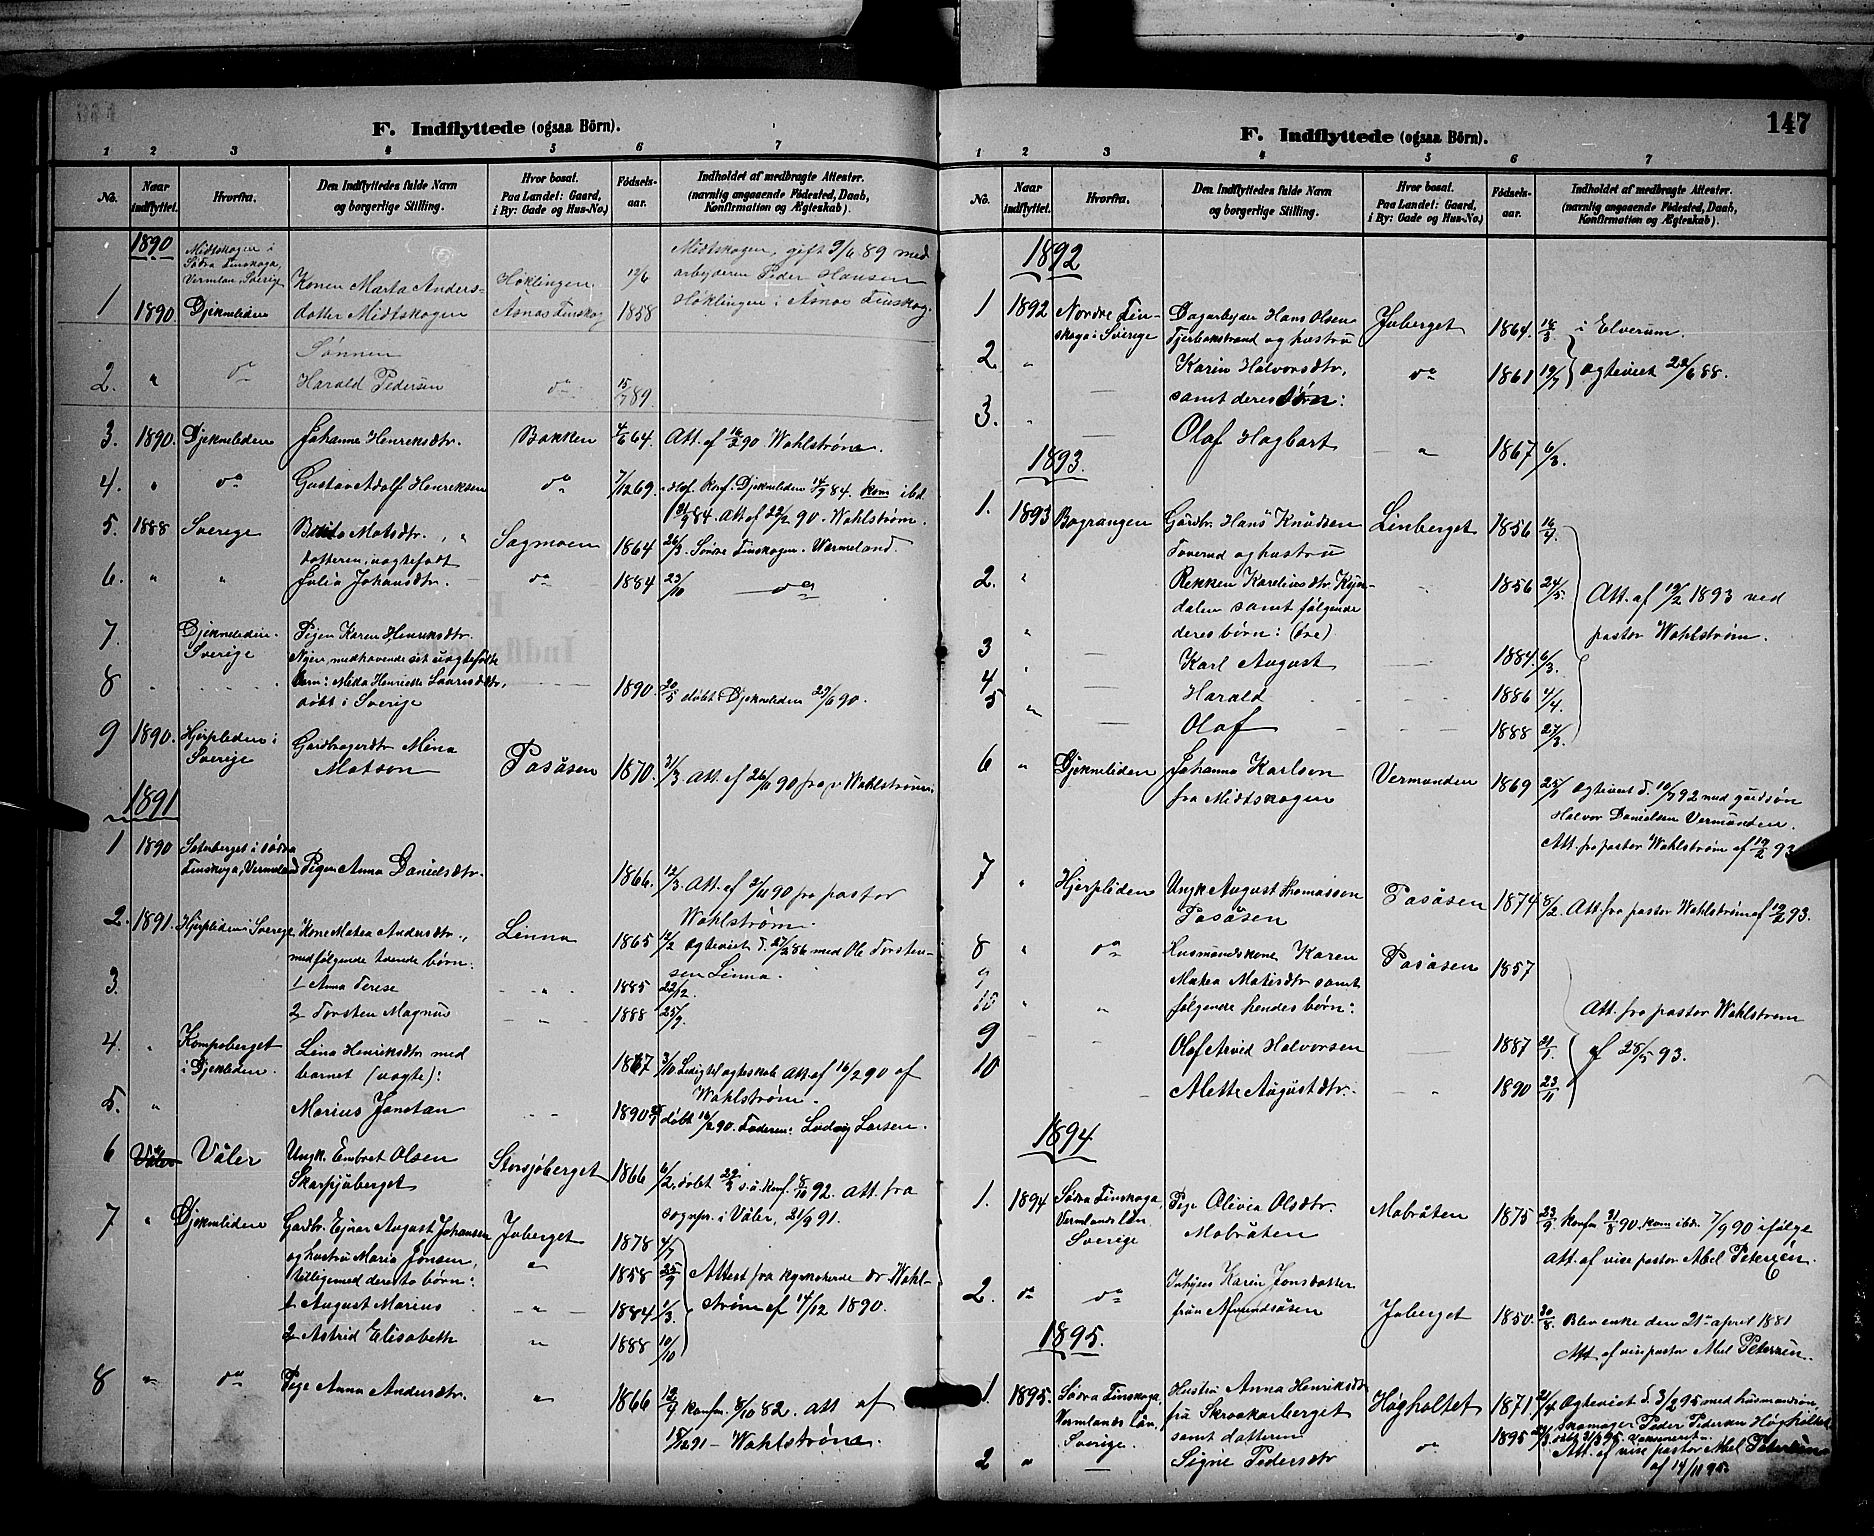 F. Indflyttede (ogsaa Börn).
1 2 3 4 5 6 7
No. Naar indflyttet. Hvorfra. Den Indflyttedes fulde Navn og borgerlige Stilling. Hvor bosat. Paa Landet: Gaard, i By: Gade og Hus-No.) Fødsels-aar. Indholdet af medbragte Attester. (navnlig angaaende Fødested, Daab, Konfirmation og Ægteskab).
1890
Midtskogen i
Södra Finskoga,
Vermlan, Sverige
Midtskogen, gift 9/6 89 med
Konen Marta Anders- Höklingen 12/6 arbejderen Peder Hansen
1 1890 Djekneliden dotter Midtskogen Åsnæs Finskog 1858 Höklingen i Åsnæs Finskog.
Sønnen
2. " do Harald Pedersen do 15/7 89.
3. 1890. Djekneliden Johanne Henriksdtr. Bakken 4/6 64. Att. af 16/2 90 Wahlström.
4. " do Gustav Adolf Henriksen do 7/12 69. Konf. Djekneliden 14/9 84. kom ibd.
21/9 84. Att. af 22/2 90. Wahlström.
5. 1888 Sverige Matsdtr., " Sagmoen 1864 26/3 Söndre Finskogen. Wermeland.
datteren, uægtefødt
6. " " Julia Johansdtr. do 1884 23/10 do
7 Djekneliden Pigen Karen Henriksdtr.
Sverige medhavende sit uægtefødte
8 barn: Henriette Lauritsdtr, 1890. 20/5 döbt Djekneliden 29/6 90.
döbt i Sverige
9 1890. Hjerpliden i Gårdbrugerdtr Mina
Sverige Matson Pasåsen 1870. 21/3 Att. af 26/11 90 fra v. Wahlström.
1891
1 1890 Säterberget i södra
Finskoga, Vermeland Pigen Anna Danielsdtr. 1866. 12/3. Att. af 2/11 90 fra pastor
Wahlström.
2. 1891. Hjerpliden i Sverige Kone Matea Andersdtr., Linna 1865 12/2 Ægteviet d. 27/2 86 med Ole Torsten-
medfølgende tvende børn: sen Linna.
3. 1 Anna Terese " 1885 22/12.
2 Torsten Magnus " 1888 25/9.
4. " Kampeberget Lina Henriksdtr med 1867 3/10 Ledig til ægteskab Att. af 16/2 90 af
i Djekliden. barnet (uægte): Wahlström.
5. " Marius Jonatan 1890 döbt 16/2 90. Faderen: Ludvig Larsen.
6 Våler Våler Ungk. Embret Olsen Storsjøberget 1866 6/2, døbt 29/3 s.å. konf. 8/10 92. Att. fra
Skarpjøberget sognpr. i Våler, 21/9 91.
7 " Djekneliden Gårdbr. Ejnar August Johansen Juberget 1878 4/7
og hustru Maria Jonsen, " 1858 25/9 Attest fra kyrkoherde dr Wahl-
tilligemed dere to børn: ström af 14/12 1890.
1. August Marius " 1884 1/3.
2 Astrid Elisabeth " 1888 10/10
8 " do Pige Anna Andersdtr. " 1866 12/9 konfm. 8/10 82. Att. af
15/2 91 – Wahlström.
147
F. Indflyttede (ogsaa Börn).
1 2 3 4 5 6 7
No. Naar indflyttet. Hvorfra. Den Indflyttedes fulde Navn og borgerlige Stilling. Hvor bosat. Paa Landet: Gaard, i By: Gade og Hus-No.) Fødsels-aar. Indholdet af medbragte Attester. (navnlig angaaende Fødested, Daab, Konfirmation og Ægteskab).
1892
1 1892 Nordre Fin- Dagarbejder Hans Olsen Juberget 1864. 18/3 i Elverum.
skoga i Sverige Tjerbekstrand og hustru
2 " Karin Halvorsdtr, do 1861 19/7 ægteviet 22/6 88.
samt deres børn:
3. " Olaf Hagbart " 1867 6/3.
1893.
1. 1893 Bograngen Gårdbr. Hans Knudsen Linberget 1856 16/4
Toverud og hustru
2. " Rekken Karelusdtr Kyn- 1856 24/5. Att. af 12/2 1893 ved
dalen samt følgende
3 " deres börn: (tre) pastor Wahlström.
Karl August 1884. 6/3.
4 " Harald 1886 4/4.
5 " Olaf 1888 27/3.
6 " Djekneliden Johanna Karlson Vermunden 1869 25/1 Ægteviet d. 10/7 92 med gårdsøn
fra Midtskogen Halvor Danielsen Vermunden.
Att. fra pastor Wahlström af 12/2 93
7 " Hjerpliden Ungk. August Thomassen Pasåsen 1874 8/2. Att fra pastor Wahlström af 12/2 93.
Pasåsen
8 " do Husmandskone Karen Pasåsen 1857
9 Matea Matisdtr samt
10 " " følgende hendes børn: Att. fra pastor Wahlström
9 Olaf Arvid Halvorsen 1887 21/1. af 28/5 93.
10 Alette Augustdtr. " 1890 23/11
1894
1. 1894 Södra Finskoga, Pige Olivia Olsdtr. Mobråten 1875 23/9 konfm 31/8 90. kom ibd. 7/9 90 ifølge
Vermlands län, Mobråten Att. af vice pastor Abel Petersén.
Sverige
2. do do Inhyses Karin Jonsdotter
från Amundsåsen Juberget 1850. 30/8. Blev enke den 21de april 1881
Att. af vice pastor Abel Petersén.
1895.
1 1895. Södra Finskoga, Hustru Anna Henriksdtr Högholtet 1871 21/4 Ægteviet d. 3/2 95 med husmandsøn,
Vermlands län, fra Skroakarberget skomager Peder Pedersen Högholtet
Sverige. samt datteren 1895 døbt 21/3 95. Vaksineret
2 " – Signe Pedersdtr do Att. af vice pastor Abel Petersén
af 14/11 95.